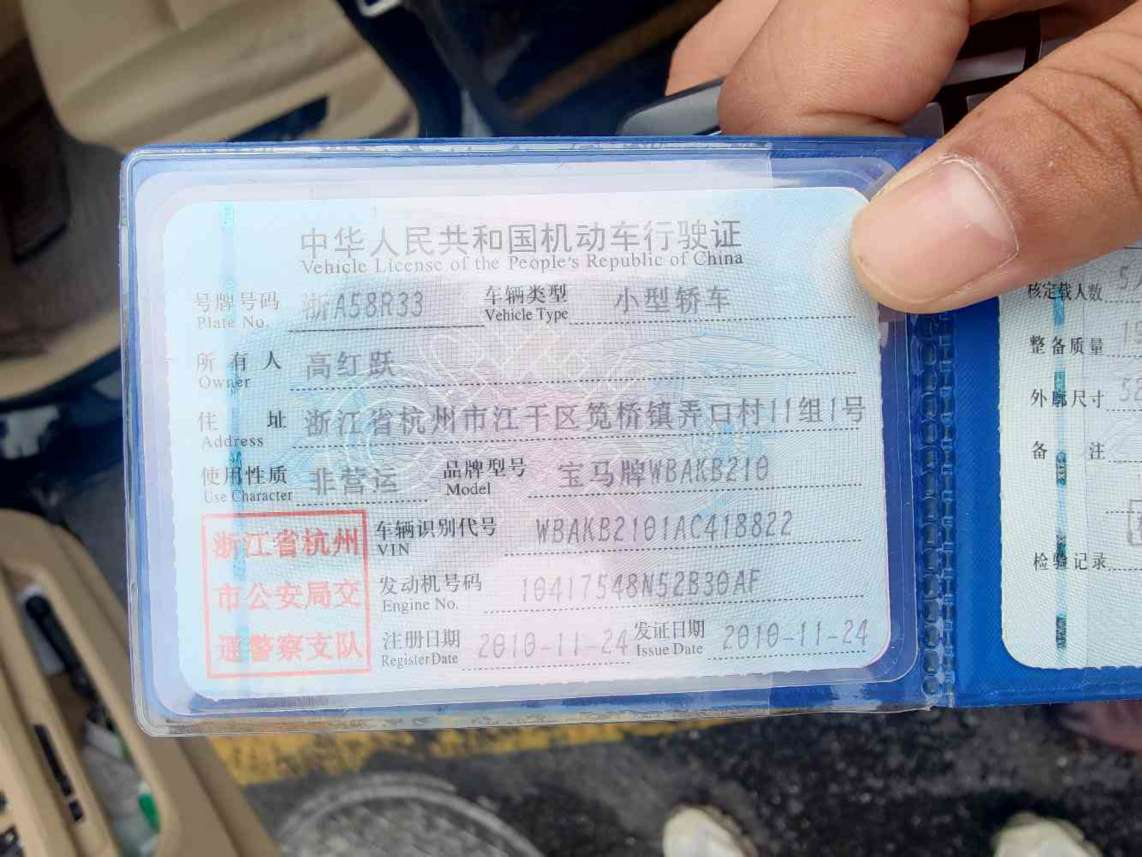 中华人民共和国机动车行驶证
Vehicle License of the People's Republic of China
号牌号码 浙A58R33 车辆类型 小型轿车
Plate No. Vehicle Type
所有人 高红跃
Owner
住址 浙江省杭州市江干区笕桥镇弄口村11组1号
Address
使用性质 非营运 品牌型号 宝马牌WBAKB210
Use Character Model
浙江省杭州
市公安局交
通警察支队
车辆识别代号 WBAKB2101AC418822
VIN
发动机号码 10417548N52B30AF
Engine No.
注册日期 2010-11-24 发证日期 2010-11-24
Register Date Issue Date
核定载人数
整备质量
外廓尺寸
备注
检验记录